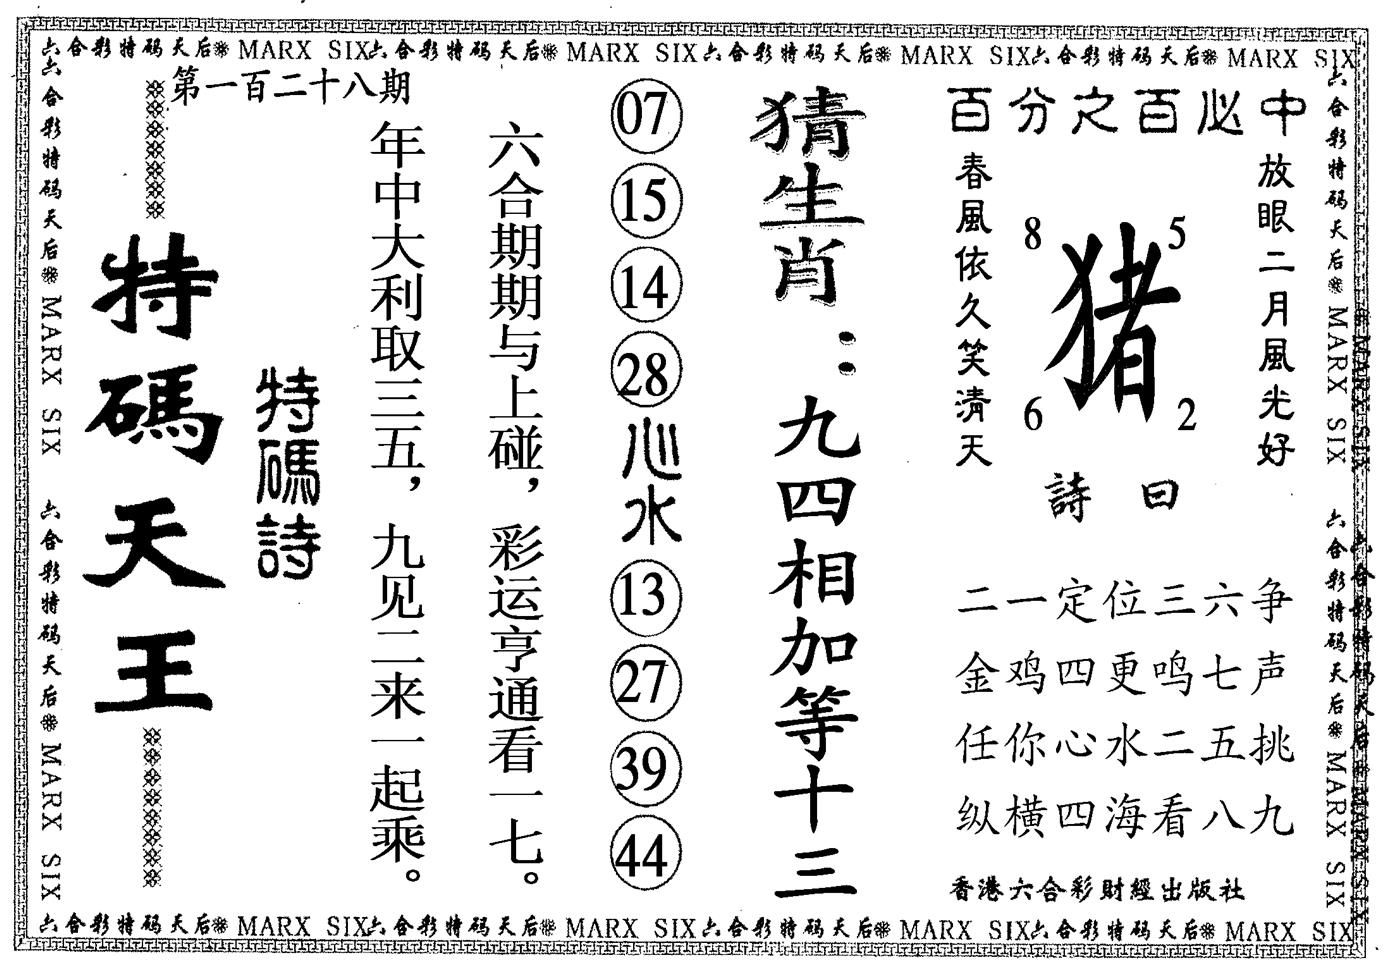 六合彩特码天后❋ MARX SIX六合彩特码天后❋ MARX SIX六合彩特码天后❋ MARX SIX六合彩特码天后❋ MARX SIX
六合彩特码天后❋ MARX SIX 六合彩特码天后❋ MARX SIX
第一百二十八期
特碼天王
特碼詩
年中大利取三五，九见二来一起乘。
六合期期与上碰，彩运亨通看一七。
07
15
14
28
心水
13
27
39
44
猜生肖：九四相加等十三
百分之百必中
春風依久笑清天
8 5
猪
6 2
放眼二月風光好
詩曰
二一定位三六争
金鸡四更鸣七声
任你心水二五挑
纵横四海看八九
香港六合彩財經出版社
六合彩特码天后❋ MARX SIX 六合彩特码天后❋ MARX SIX
❋ MARX SIX 六合彩特码天后❋ MARX SIX
六合彩特码天后❋ MARX SIX六合彩特码天后❋ MARX SIX六合彩特码天后❋ MARX SIX六合彩特码天后❋ MARX SIX